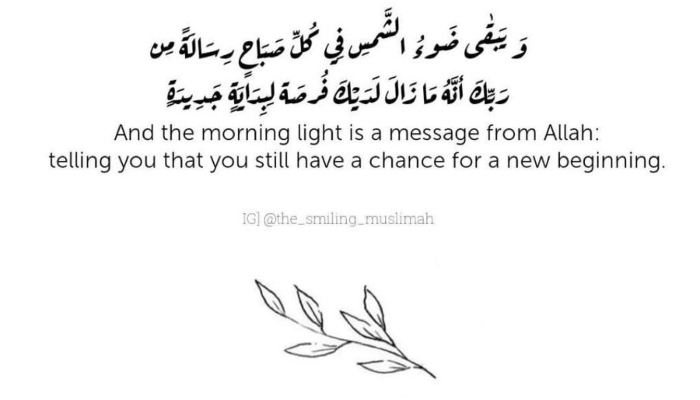 وَ يَبْقٰى ضَوءُ الشَّمسِ فِي كُلِّ صَبَاحٍ رِسَالَةً مِن
رَبِّكَ أنَّهُ مَا زَالَ لَدَيْكَ فُرصَة لِبِدَايَةٍ جَدِيدَةٍ
And the morning light is a message from Allah:
telling you that you still have a chance for a new beginning.
IG] @the_smiling_muslimah